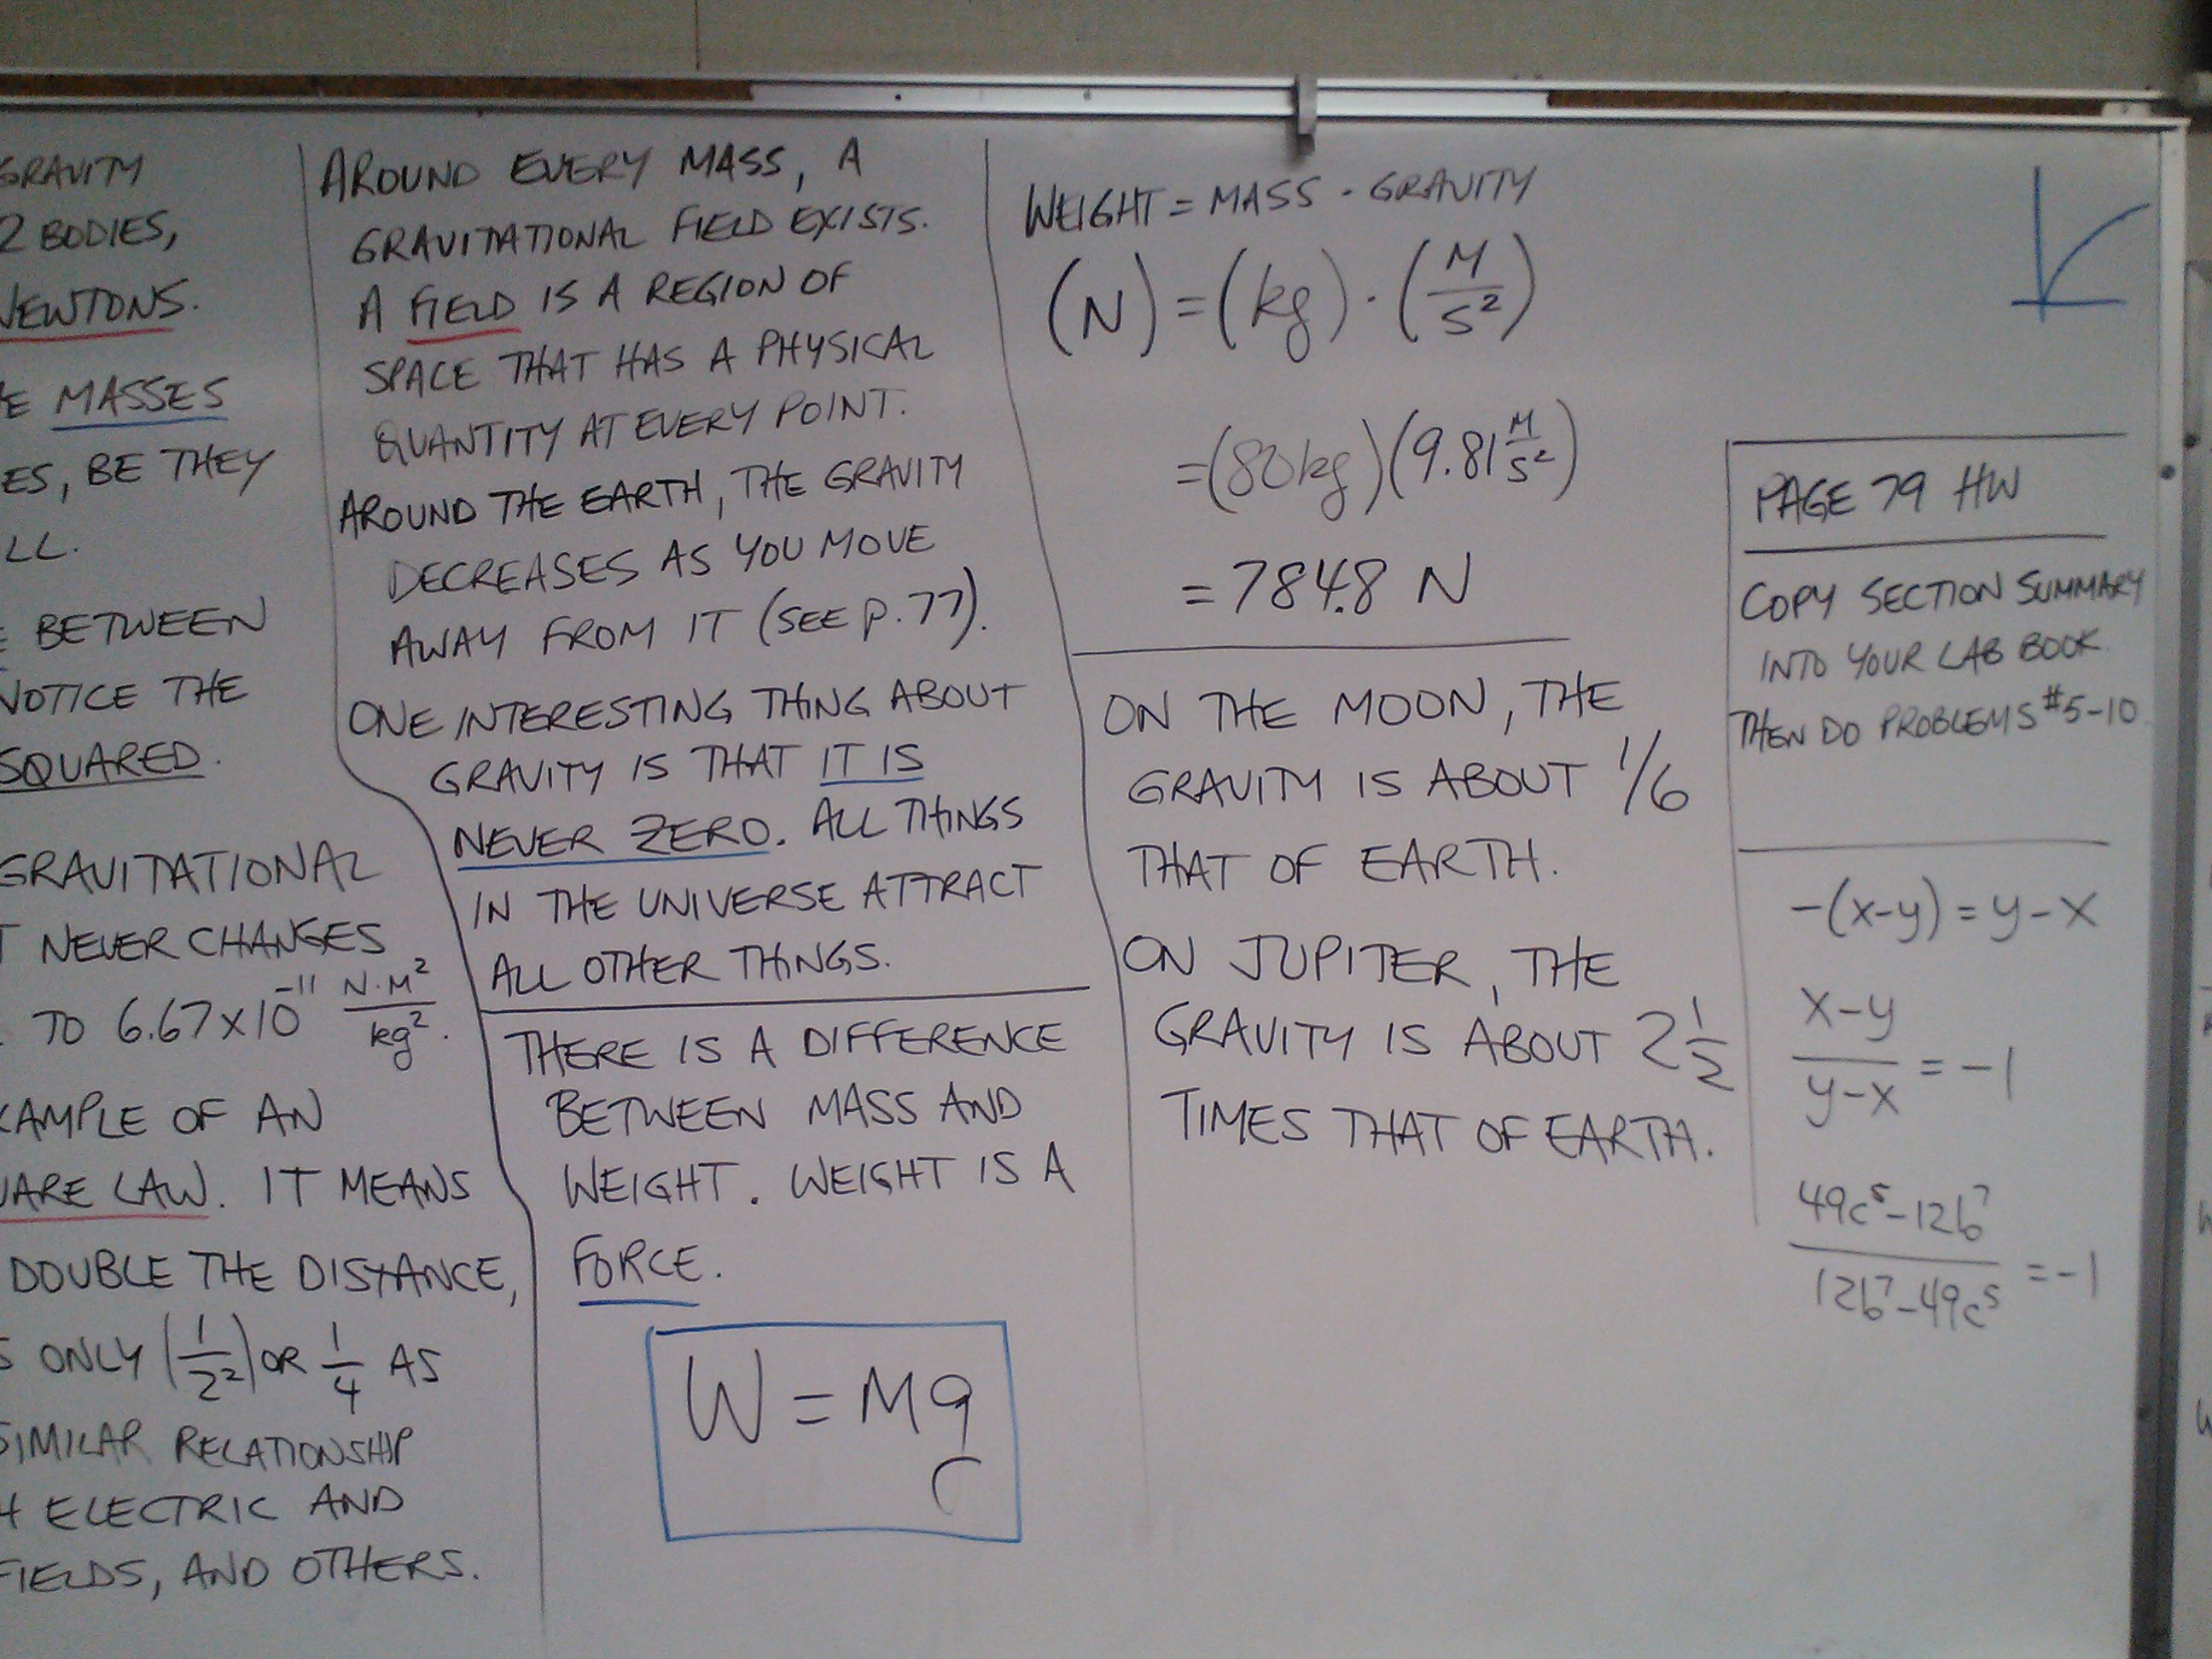 GRAVITY
2 BODIES,
NEWTONS.
E MASSES
ES, BE THEY
LL.
E BETWEEN
NOTICE THE
SQUARED.
GRAVITATIONAL
T NEVER CHANGES
TO 6.67×10⁻¹¹ N·M²/kg².
XAMPLE OF AN
UARE LAW. IT MEANS
DOUBLE THE DISTANCE,
S ONLY (1/2²) OR 1/4 AS
SIMILAR RELATIONSHIP
H ELECTRIC AND
FIELDS, AND OTHERS.
AROUND EVERY MASS, A
GRAVITATIONAL FIELD EXISTS.
A FIELD IS A REGION OF
SPACE THAT HAS A PHYSICAL
QUANTITY AT EVERY POINT.
AROUND THE EARTH, THE GRAVITY
DECREASES AS YOU MOVE
AWAY FROM IT (SEE p.77).
ONE INTERESTING THING ABOUT
GRAVITY IS THAT IT IS
NEVER ZERO. ALL THINGS
IN THE UNIVERSE ATTRACT
ALL OTHER THINGS.
THERE IS A DIFFERENCE
BETWEEN MASS AND
WEIGHT. WEIGHT IS A
FORCE.
W = Mg
WEIGHT = MASS · GRAVITY
(N) = (kg) · (M/S²)
= (80kg)(9.81 M/S²)
= 784.8 N
ON THE MOON, THE
GRAVITY IS ABOUT 1/6
THAT OF EARTH.
ON JUPITER, THE
GRAVITY IS ABOUT 2 1/2
TIMES THAT OF EARTH.
PAGE 79 HW
COPY SECTION SUMMARY
INTO YOUR LAB BOOK.
THEN DO PROBLEMS #5-10
-(x-y) = y-x
x-y/y-x = -1
49c⁵-12b⁷/12b⁷-49c⁵ = -1